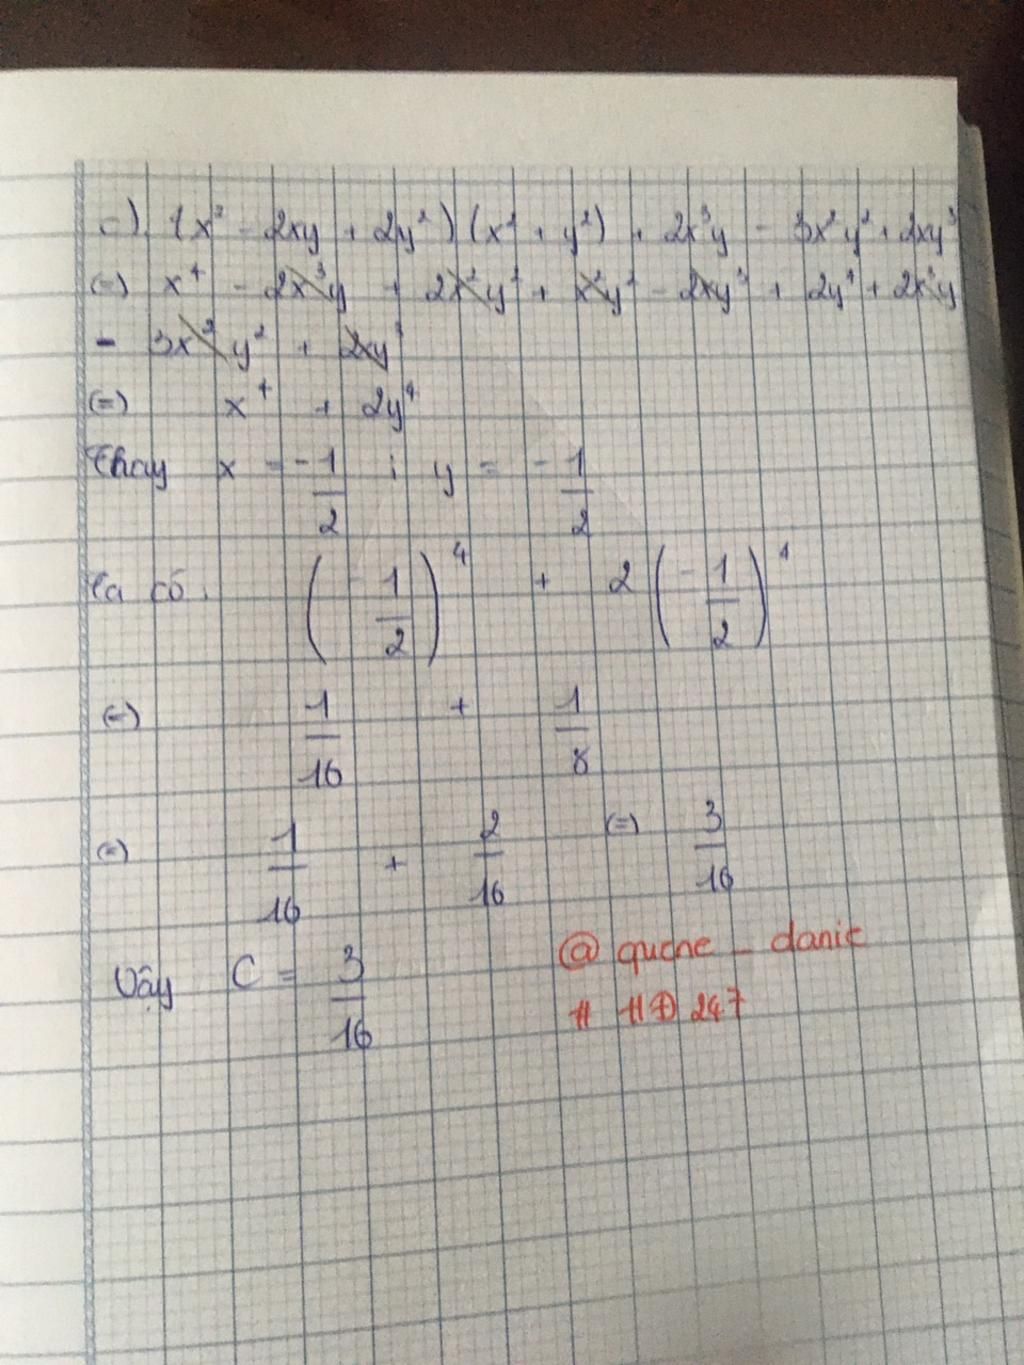 c) (x² - 2xy + 2y²)(x² + y²) + 2x³y - 3x²y² + 2xy³
(=) x⁴ - 2x³y + 2x²y² + x²y² - 2xy³ + 2y⁴ + 2x³y
- 3x²y² + 2xy³
(=) x⁴ + 2y⁴
Thay x = -1/2 ; y = -1/2
Ta có: (-1/2)⁴ + 2(-1/2)⁴
(=) 1/16 + 1/8
(=) 1/16 + 2/16 (=) 3/16
Vậy C = 3/16
@ qucne _ danie
# HĐ 247